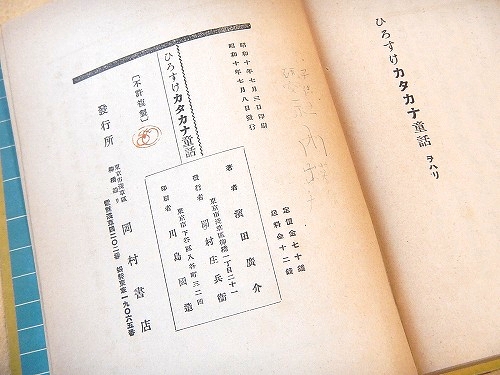 ひろすけカタカナ童話 ヲハリ
昭和十年七月三日印刷
昭和十年七月八日發行
定價金七十錢
送料金十二錢
著者 濱田廣介
東京市淺草區御橋一丁目二十一
發行者 岡村庄兵衞
東京市下谷區入谷町三二四
印刷者 川島國造
ひろすけカタカナ童話
【不許複製】
發行所
東京市淺草區
岡村書店